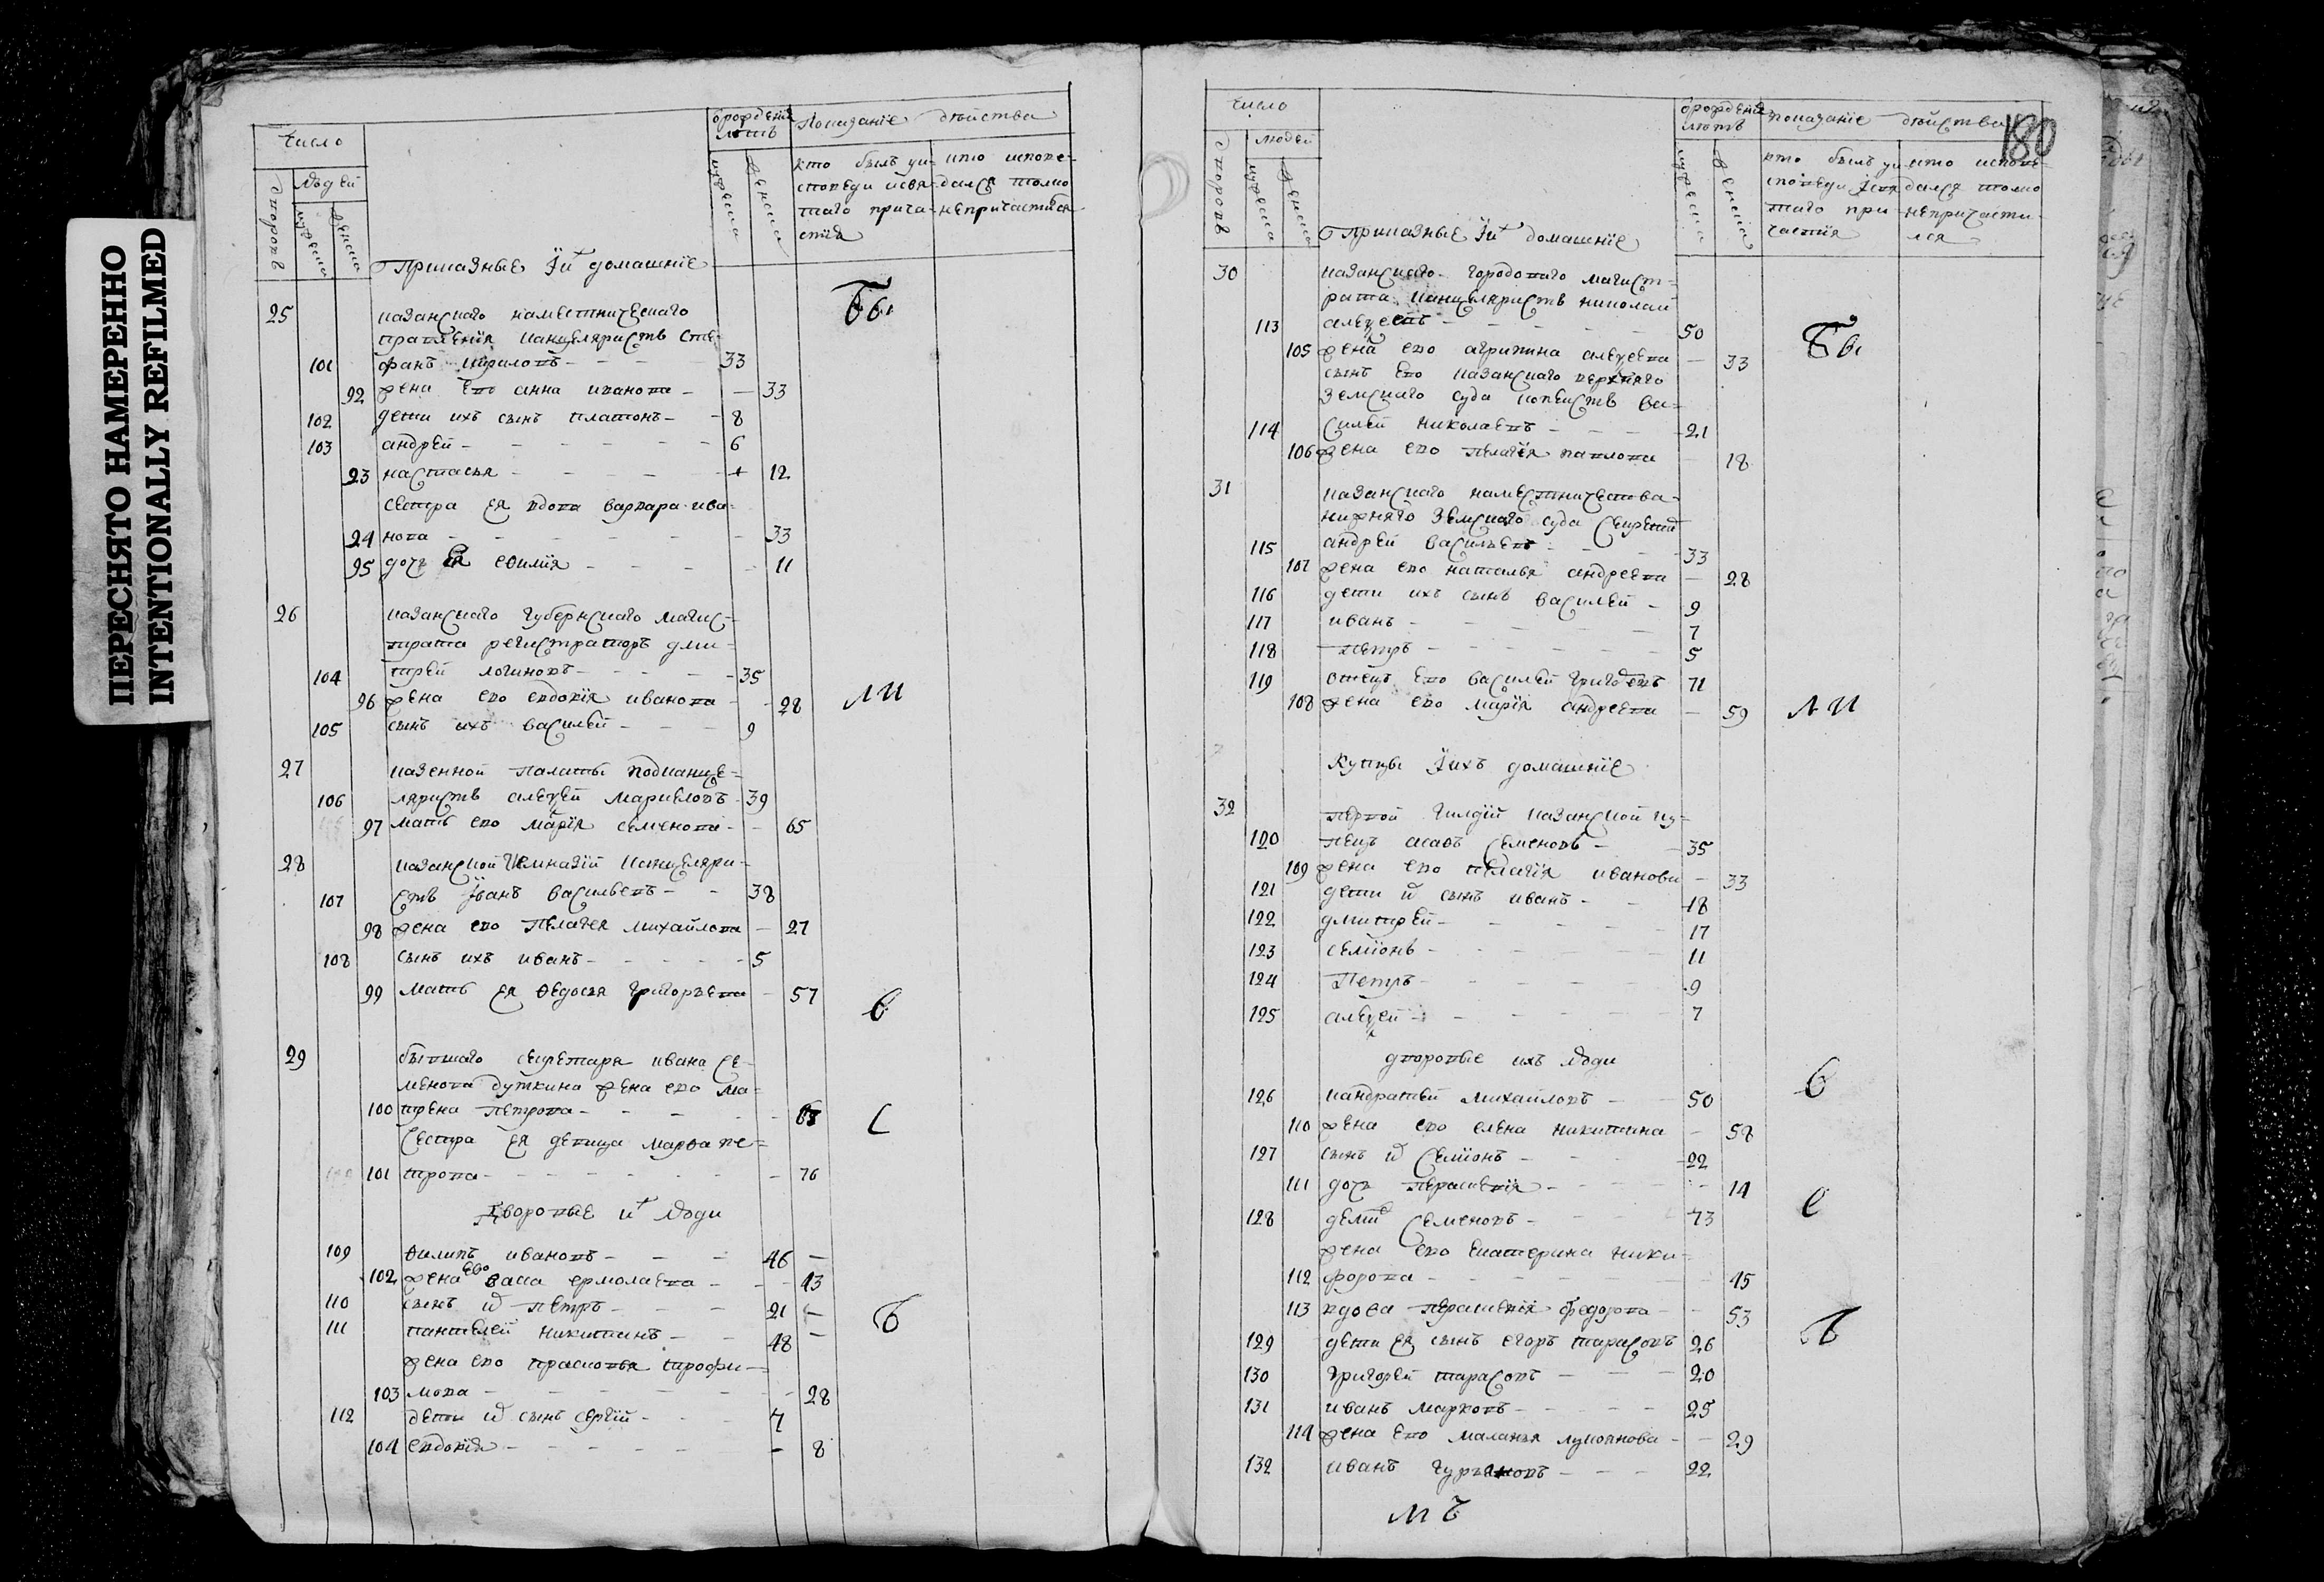 ПЕРЕСНЯТО НАМЕРЕННО
INTENTIONALLY REFILMED
число
дворовъ
людей
мужеска
женска
приказные и их домашніе
отрожденія лѣтъ
мужеска
женска
показаніе действа
кто былъ уи-
споведи исвя-
таго прича-
стія
кто испове-
дался толко
непричастился
25
казанскаго наместническаго
правленія канцеляристъ сте-
101 фанъ кириловъ - 33
92 жена ево анна иванова - 33
102 дети ихъ сынъ платонъ - 8
103 андрей - 6
93 настасья - 12
сестра ея вдова варвара ива-
94 нова - 33
95 дочь ея еѳимія - 11
26
казанскаго губернскаго магис-
трата регистраторъ дми-
104 трей логиновъ - 35
96 жена ево евдокія иванова - 28
105 сынъ ихъ василей - 9
27
казенной палаты подканце-
106 ляристъ алексей маркеловъ - 39
97 мать ево марія семенова - 65
28
казанской гимназій канцеляри-
107 стъ иванъ васильевъ - 38
98 жена ево пелагея михайлова - 27
108 сынъ ихъ иванъ - 5
99 мать ея ѳедосья григорьева - 57
29
бывшаго секретаря ивана се-
менова дуткина жена ево ма-
100 трена петрова -
сестра ея девица марѳа пе-
101 трова - 76
дворовые их люди
109 ѳилипъ ивановъ - 46
102 жена ево васса ермолаева - 43
110 сынъ их петръ - 21
111 пантелей никитинъ - 48
жена ево прасковья трофи-
103 мова - 28
112 дети их сынъ сергій - 7
104 евдокія - 8
бы
ли
в
с
б
180
число
дворовъ
людей
мужеска
женска
приказные и их домашніе
отрожденія лѣтъ
мужеска
женска
показаніе действа
кто былъ уи-
споведи исвя-
таго при-
частія
кто испове-
дался толко
непричасти-
лся
30
казанскаго городоваго магист-
рата канцеляристъ николай
113 алексеевъ - 50
105 жена ево агрипина алексеева - 33
сынъ ево казанскаго верхняго
земскаго суда копеистъ ва-
114 силей николаевъ - 21
106 жена ево пелагея павлова - 18
31
казанскаго наместничества
нижняго земскаго суда секретар
115 андрей васильевъ - 33
107 жена ево наталья андреева - 28
116 дети ихъ сынъ василей - 9
117 иванъ - 7
118 петръ - 5
119 отецъ ево василей григорьевъ 71
108 жена ево марія андреева - 59
купцы и ихъ домашніе
32
первой гилдій казанской ку-
120 пецъ асаѳъ семеновъ - 35
109 жена ево пелагія иванова - 33
121 дети их сынъ иванъ - 18
122 дмитрей - 17
123 семіонъ - 11
124 петръ - 9
125 алексей - 7
дворовые ихъ люди
126 кандратей михайловъ - 50
110 жена ево елена никитина - 58
127 сынъ их семіонъ - 22
111 дочь парасковія - 14
128 семеновъ - 43
жена ево екатерина ники-
112 форова - 45
113 вдова парасковія федорова - 53
129 дети ея сынъ егоръ тарасовъ 26
130 григорей тарасовъ - 20
131 иванъ марковъ - 25
114 жена ево маланья лукоянова - 29
132 иванъ гурьяновъ - 22
бы
ли
в
с
ѣ
м ѣ